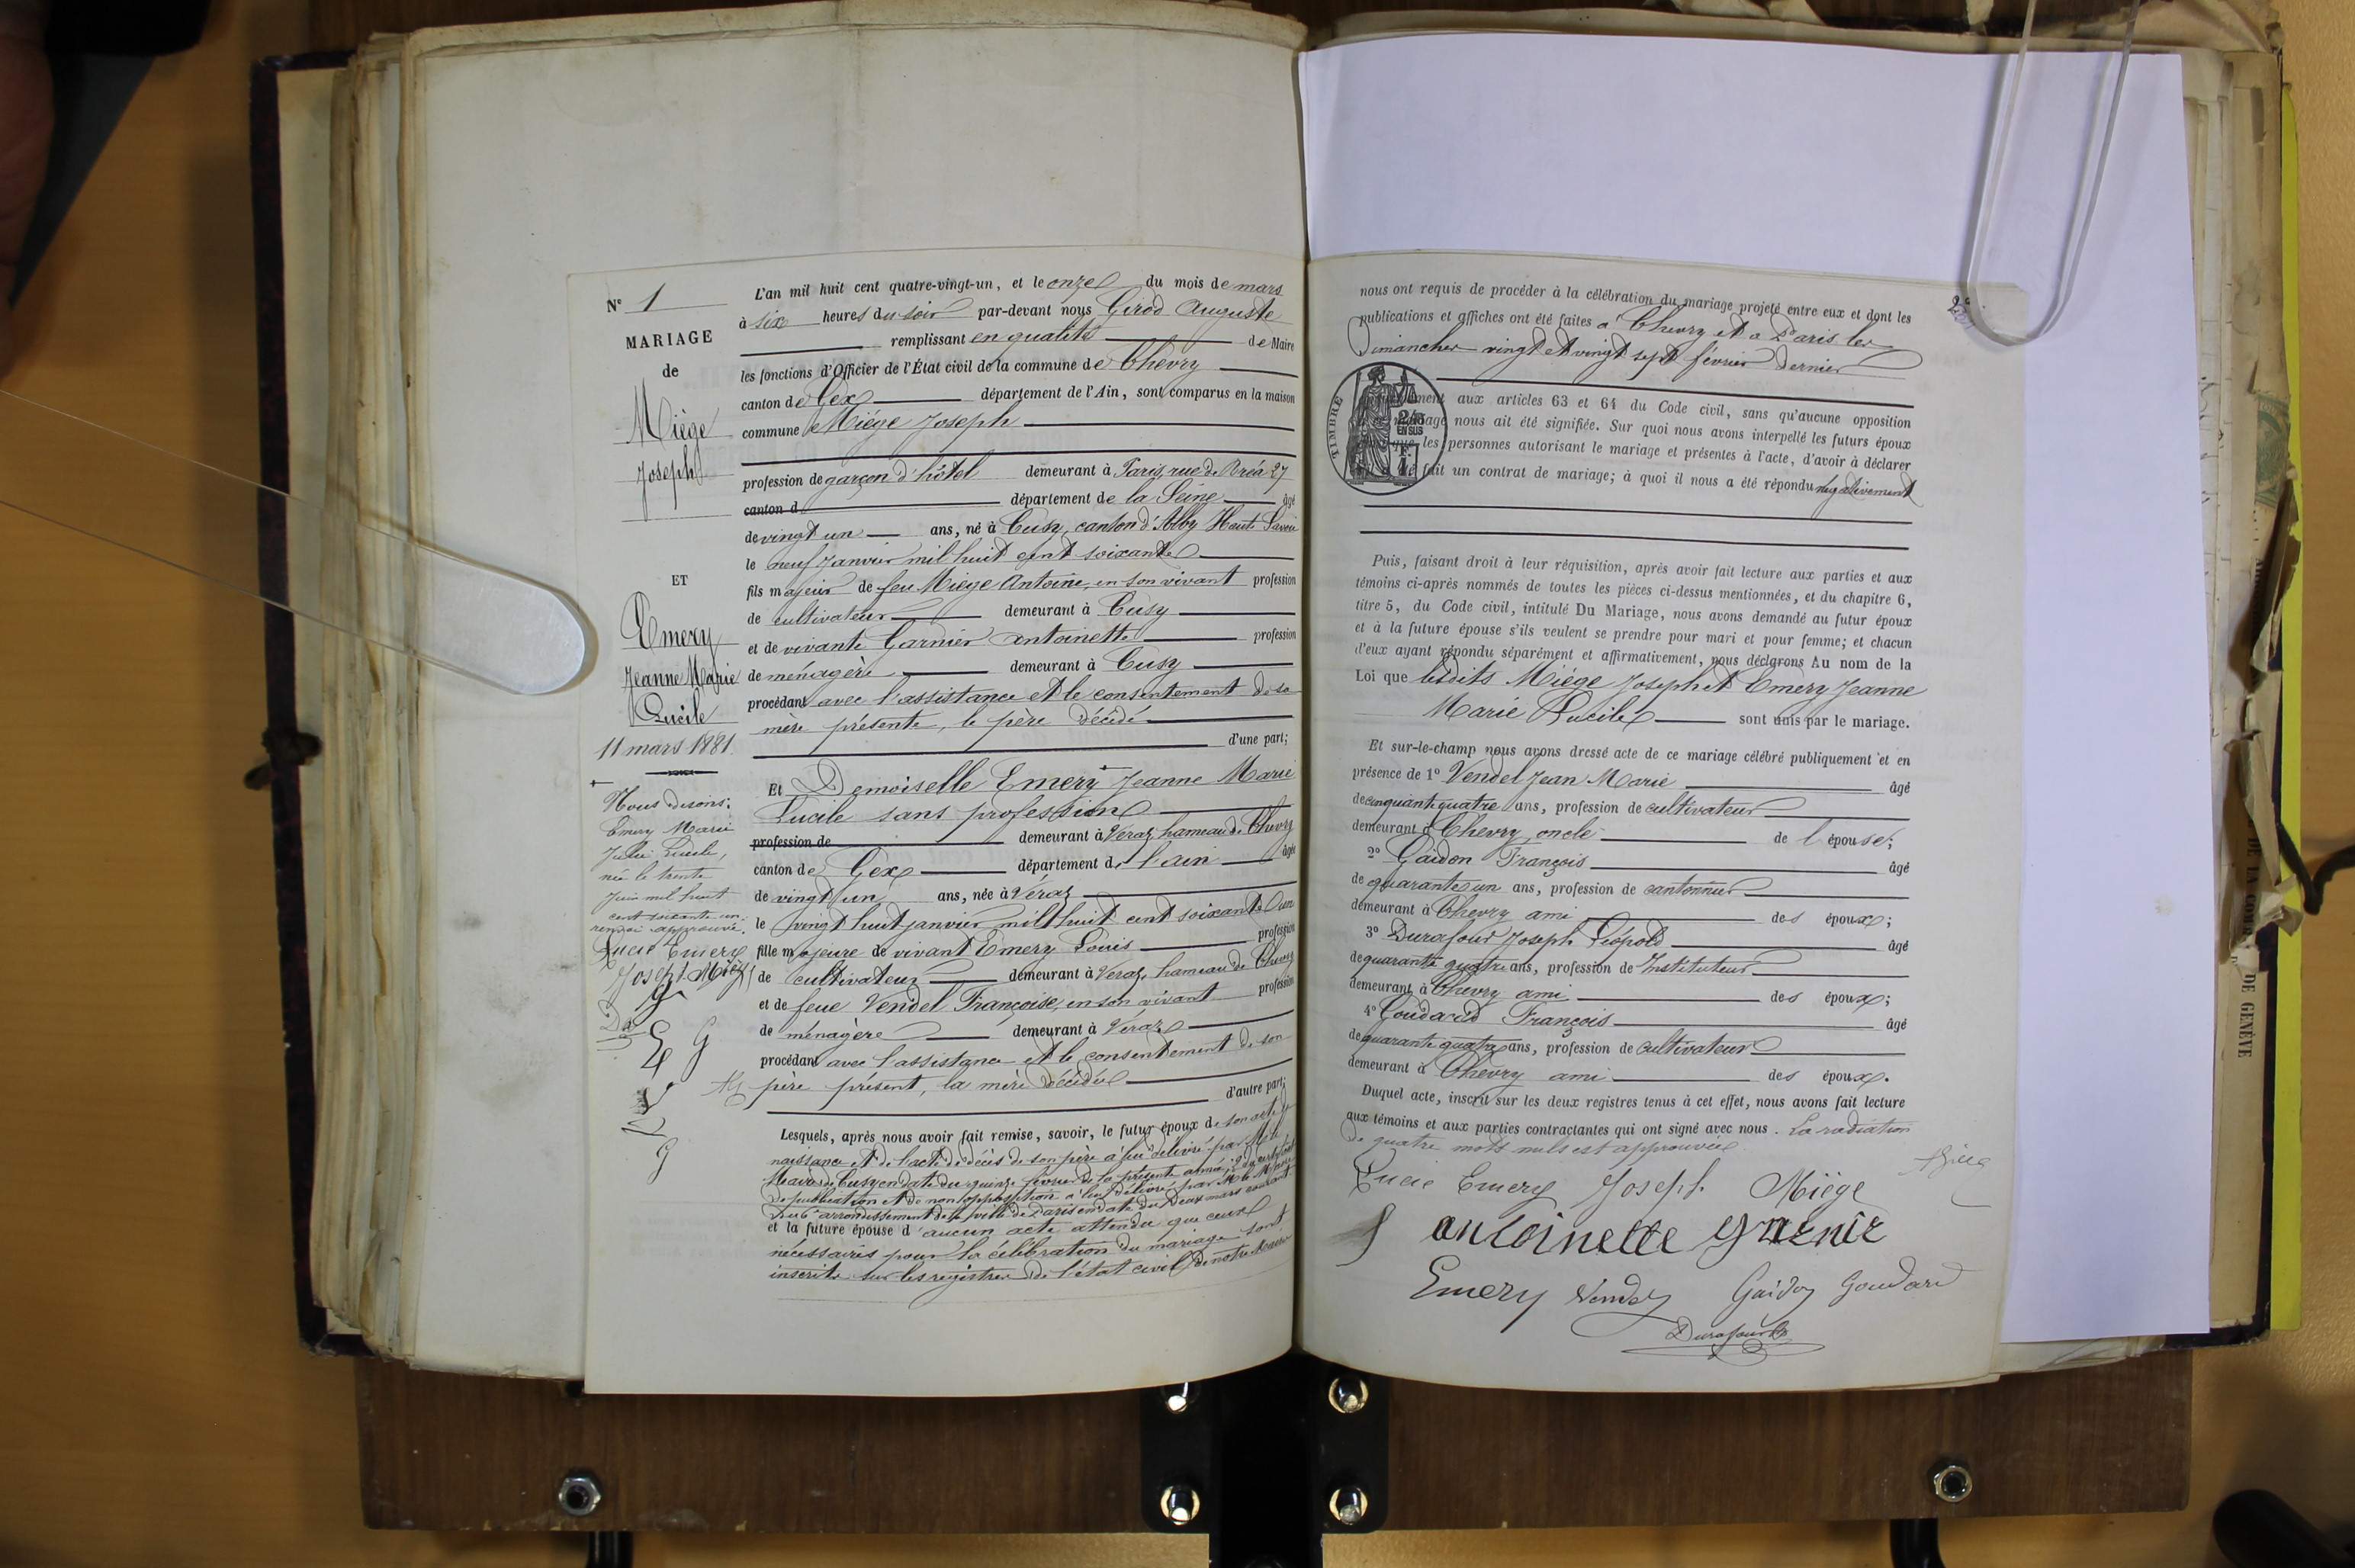 N° 1
MARIAGE
de
Miège
Joseph
ET
Emery
Jeanne Marie
Lucile
11 mars 1881
Nous disons:
Emery Marie
Julie Lucile,
née le trente
Juin mil huit
cent soixante un.
renvoi approuvé.
Lucie Emery
Joseph Miège
L'an mil huit cent quatre-vingt-un, et le onze du mois de mars
à six heures du soir par-devant nous Girod Auguste
remplissant en qualité de Maire
les fonctions d'Officier de l'État civil de la commune de Chevry
canton de Gex département de l'Ain, sont comparus en la maison
commune Miége Joseph
profession de garçon d'hôtel demeurant à Paris, rue de Bréa 27
canton d département de la Seine âgé
de vingt un ans, né à Cusy, canton d'Alby Haute Savoie
le neuf Janvier mil huit cent soixante
fils majeur de feu Miége Antoine, en son vivant profession
de cultivateur demeurant à Cusy
et de vivante Garnier Antoinette profession
de ménagère demeurant à Cusy
procédant avec l'assistance et le consentement de sa
mère présente, le père décédé
d'une part;
Et Demoiselle Emery Jeanne Marie
Lucile sans profession
profession de demeurant à Véraz hameau de Chevry
canton de Gex département de l'ain âgée
de vingt un ans, née à Véraz
le vingt huit janvier mil huit cent soixante un
fille majeure de vivant Emery Louis profession
de cultivateur demeurant à Véraz, hameau de Chevry
et de feue Vendel Françoise, en son vivant profession
de ménagère demeurant à Véraz
procédant avec l'assistance et le consentement de son
père présent, la mère décédée
d'autre part;
Lesquels, après nous avoir fait remise, savoir, le futur époux de son acte de
naissance et de l'acte de décès de son père à lui délivré par M. le
Maire de Cusy en date du quinze février de la présente année,
de publication et de non opposition à lui délivré par M. le Maire
du 6e arrondissement de la ville de Paris en date du deux mars courant
et la future épouse d'aucun acte attendu que ceux
nécessaires pour la célébration du mariage sont
inscrits sur les registres de l'état civil de notre Mairie
nous ont requis de procéder à la célébration du mariage projeté entre eux et dont les
publications et affiches ont été faites à Chevry et à Paris les
Dimanches vingt et vingt sept février dernier
TIMBRE
2/10
EN SUS
aux articles 63 et 64 du Code civil, sans qu'aucune opposition
nous ait été signifiée. Sur quoi nous avons interpellé les futurs époux
que les personnes autorisant le mariage et présentes à l'acte, d'avoir à déclarer
fait un contrat de mariage; à quoi il nous a été répondu négativement
Puis, faisant droit à leur réquisition, après avoir fait lecture aux parties et aux
témoins ci-après nommés de toutes les pièces ci-dessus mentionnées, et du chapitre 6,
titre 5, du Code civil, intitulé Du Mariage, nous avons demandé au futur époux
et à la future épouse s'ils veulent se prendre pour mari et pour femme; et chacun
d'eux ayant répondu séparément et affirmativement, nous déclarons Au nom de la
Loi que lesdits Miége Joseph et Emery Jeanne
Marie Lucile sont unis par le mariage.
Et sur-le-champ nous avons dressé acte de ce mariage célébré publiquement et en
présence de 1° Vendel Jean Marie âgé
de cinquante quatre ans, profession de cultivateur
demeurant à Chevry oncle de l'épouse;
2° Gaidon François âgé
de quarante un ans, profession de cantonnier
demeurant à Chevry ami des époux;
3° Durafour Joseph Léopold âgé
de quarante quatre ans, profession de Instituteur
demeurant à Chevry ami des époux;
4° Goudard François âgé
de quarante quatre ans, profession de cultivateur
demeurant à Chevry ami des époux.
Duquel acte, inscrit sur les deux registres tenus à cet effet, nous avons fait lecture
aux témoins et aux parties contractantes qui ont signé avec nous. La radiation
de quatre mots nuls est approuvée
Lucie Emery Joseph Miège
antoinette garnie
Emery Vendel Gaidon Goudard
Durafour
DE GENÈVE